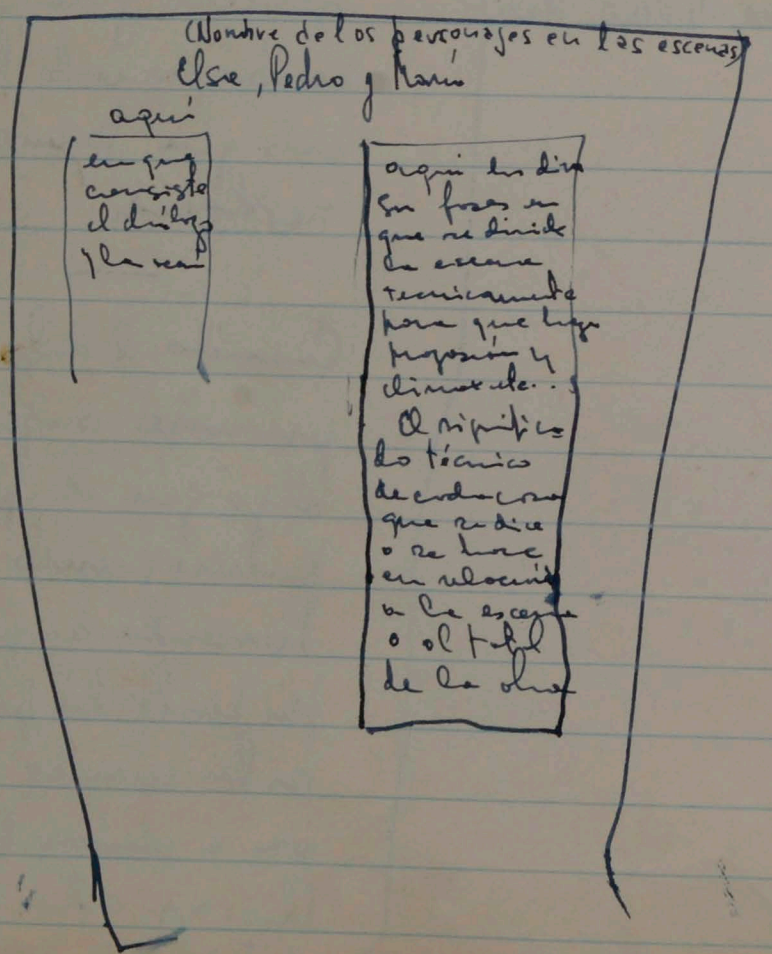 (Nombre de los personajes en las escenas)
Elsa, Pedro y Mario
aquí
en que
consiste
el diálogo
y la
aqui
en
que se divide
la escena
tecnicamente
para que haya
progresión y
climax etc...
El significa
do técnico
de cada cosa
que se dice
o se hace
en relación
a la escena
o al total
de la obra